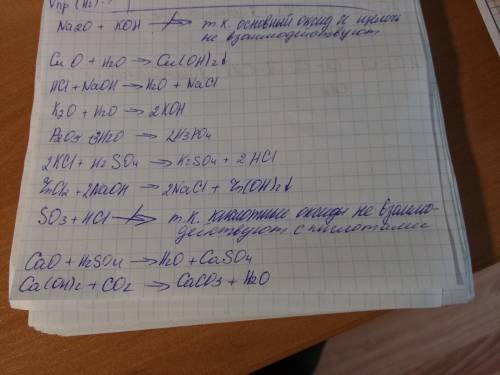 Упр (
Na2O + KOH ↛ т.к. основный оксид и щелочь
не взаимодействуют
CuO + H2O → Cu(OH)2↓
HCl + NaOH → H2O + NaCl
K2O + H2O → 2KOH
P2O5 + 3H2O → 2H3PO4
2KCl + H2SO4 → K2SO4 + 2HCl
ZnCl2 + 2NaOH → 2NaCl + Zn(OH)2↓
SO3 + HCl ↛ т.к. кислотные оксиды не взаимо-
действуют с кислотами
CaO + H2SO4 → H2O + CaSO4
Ca(OH)2 + CO2 → CaCO3 + H2O